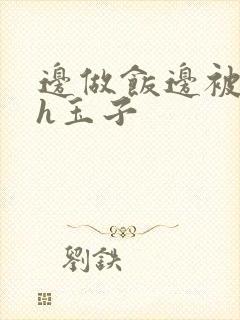 邊做飯邊被
h玉子
劉鉄